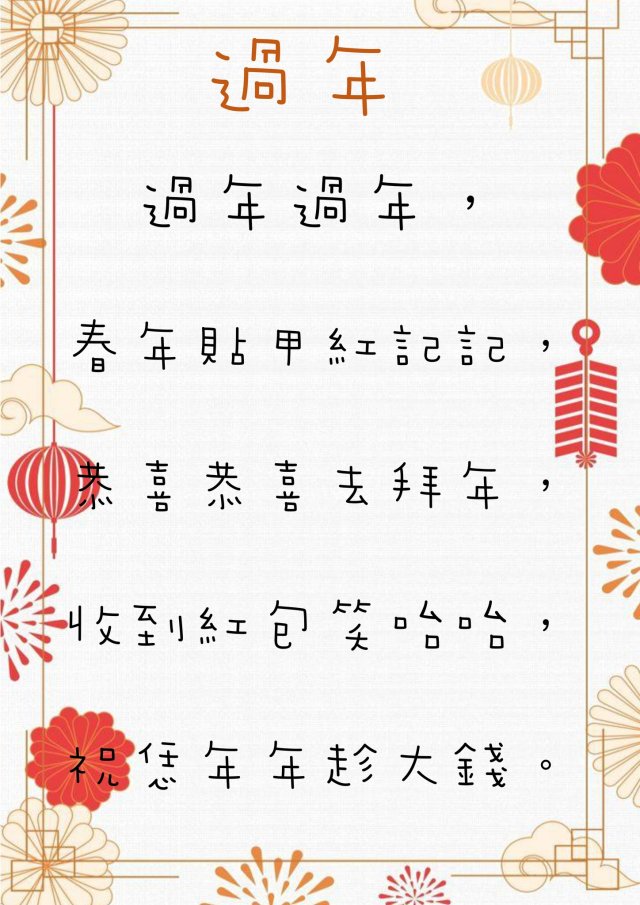 過年
過年過年，
春年貼甲紅記記，
恭喜恭喜去拜年，
收到紅包笑咍咍，
祝恁年年趁大錢。